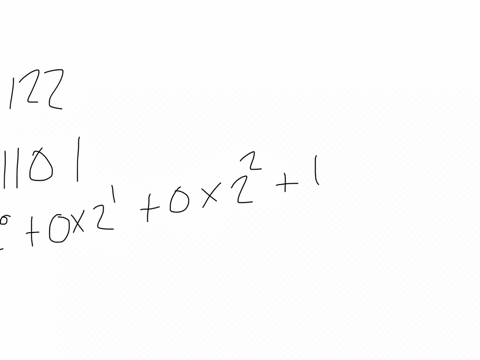 122
1101
2⁰ + 0 × 2¹ + 0 × 2² + 1